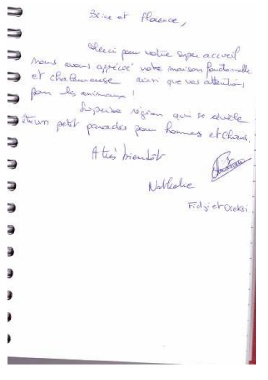 et Florence,
Merci pour votre super accueil
nous avons apprécié votre maison fonctionnelle
et chaleureuse ainsi que vos attentions
pour les animaux !
Superbe région qui se révèle
être un petit paradis pour hommes et chiens.
A très bientôt
Nathalie
Fidji et